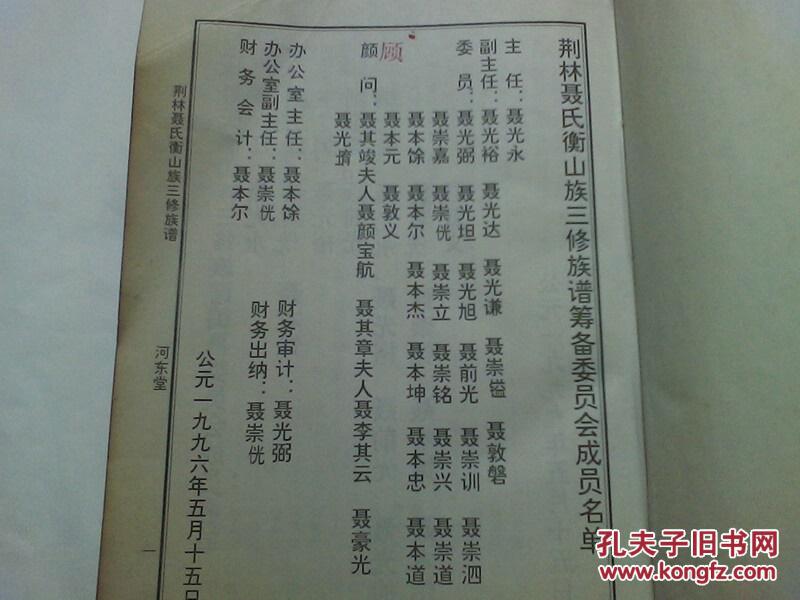 荆林聂氏衡山族三修族谱筹备委员会成员名单
主任：聂光永
副主任：聂光裕 聂光达 聂光谦 聂崇镒 聂敦磐
委员：聂光弼 聂光坦 聂光旭 聂前光 聂崇训 聂崇泗
聂崇嘉 聂崇侊 聂崇立 聂崇铭 聂崇兴 聂崇道
聂本馀 聂本尔 聂本杰 聂本坤 聂本忠 聂本道
聂本元 聂敦义
顾
顾问：聂其竣夫人聂颜宝航 聂其章夫人聂李其云 聂豪光
聂光
办公室主任：聂本馀 财务审计：聂光弼
办公室副主任：聂崇侊 财务出纳：聂崇侊
财务会计：聂本尔
公元一九九六年五月十五日
荆林聂氏衡山族三修族谱
河东堂
一
孔夫子旧书网
www.kongfz.com